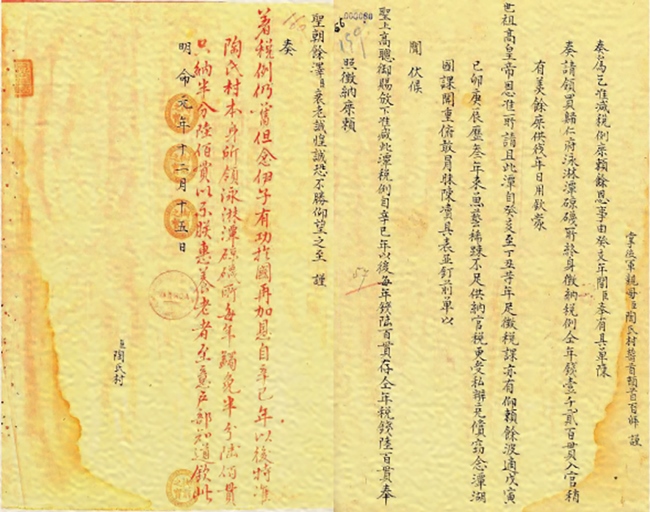 掌伍軍親母臣陶氏村稽首頓首百拜 謹
奏爲乞准減稅例庶賴餘恩事由癸亥年間臣奉有具單陳
奏請領買歸仁府泳淋潭硠磯所終身徵納稅例全年錢壹千貳百貫入官稍
有羨餘庶供殘年日用欽蒙
世祖高皇帝恩准所請且此潭自癸亥至丁丑等年足徵稅課亦有仰賴餘波適戊寅
己卯庚辰歷叁年來魚藝稀踈不足供納官稅更受私辦充償竊念潭湖
國課關重俯敢冒昧陳瀆具表並釘前單以
聞伏候
聖上高聽御賜敕下准減此潭稅例自辛巳年以後每年錢陸百貫存全年稅錢陸百貫奉
照徵納庶賴
000080
聖朝餘澤自衰老誠惶誠恐不勝仰望之至 謹
奏
著稅例仍舊但念伊子有功於國再加恩自辛巳年以後特準
陶氏村本身所領泳淋潭硠磯所每年蠲免半分陸佰貫
只納半分陸佰貫以示朕惠養老者至意戶部知道欽此
明命元年十二月十五日
臣陶氏村